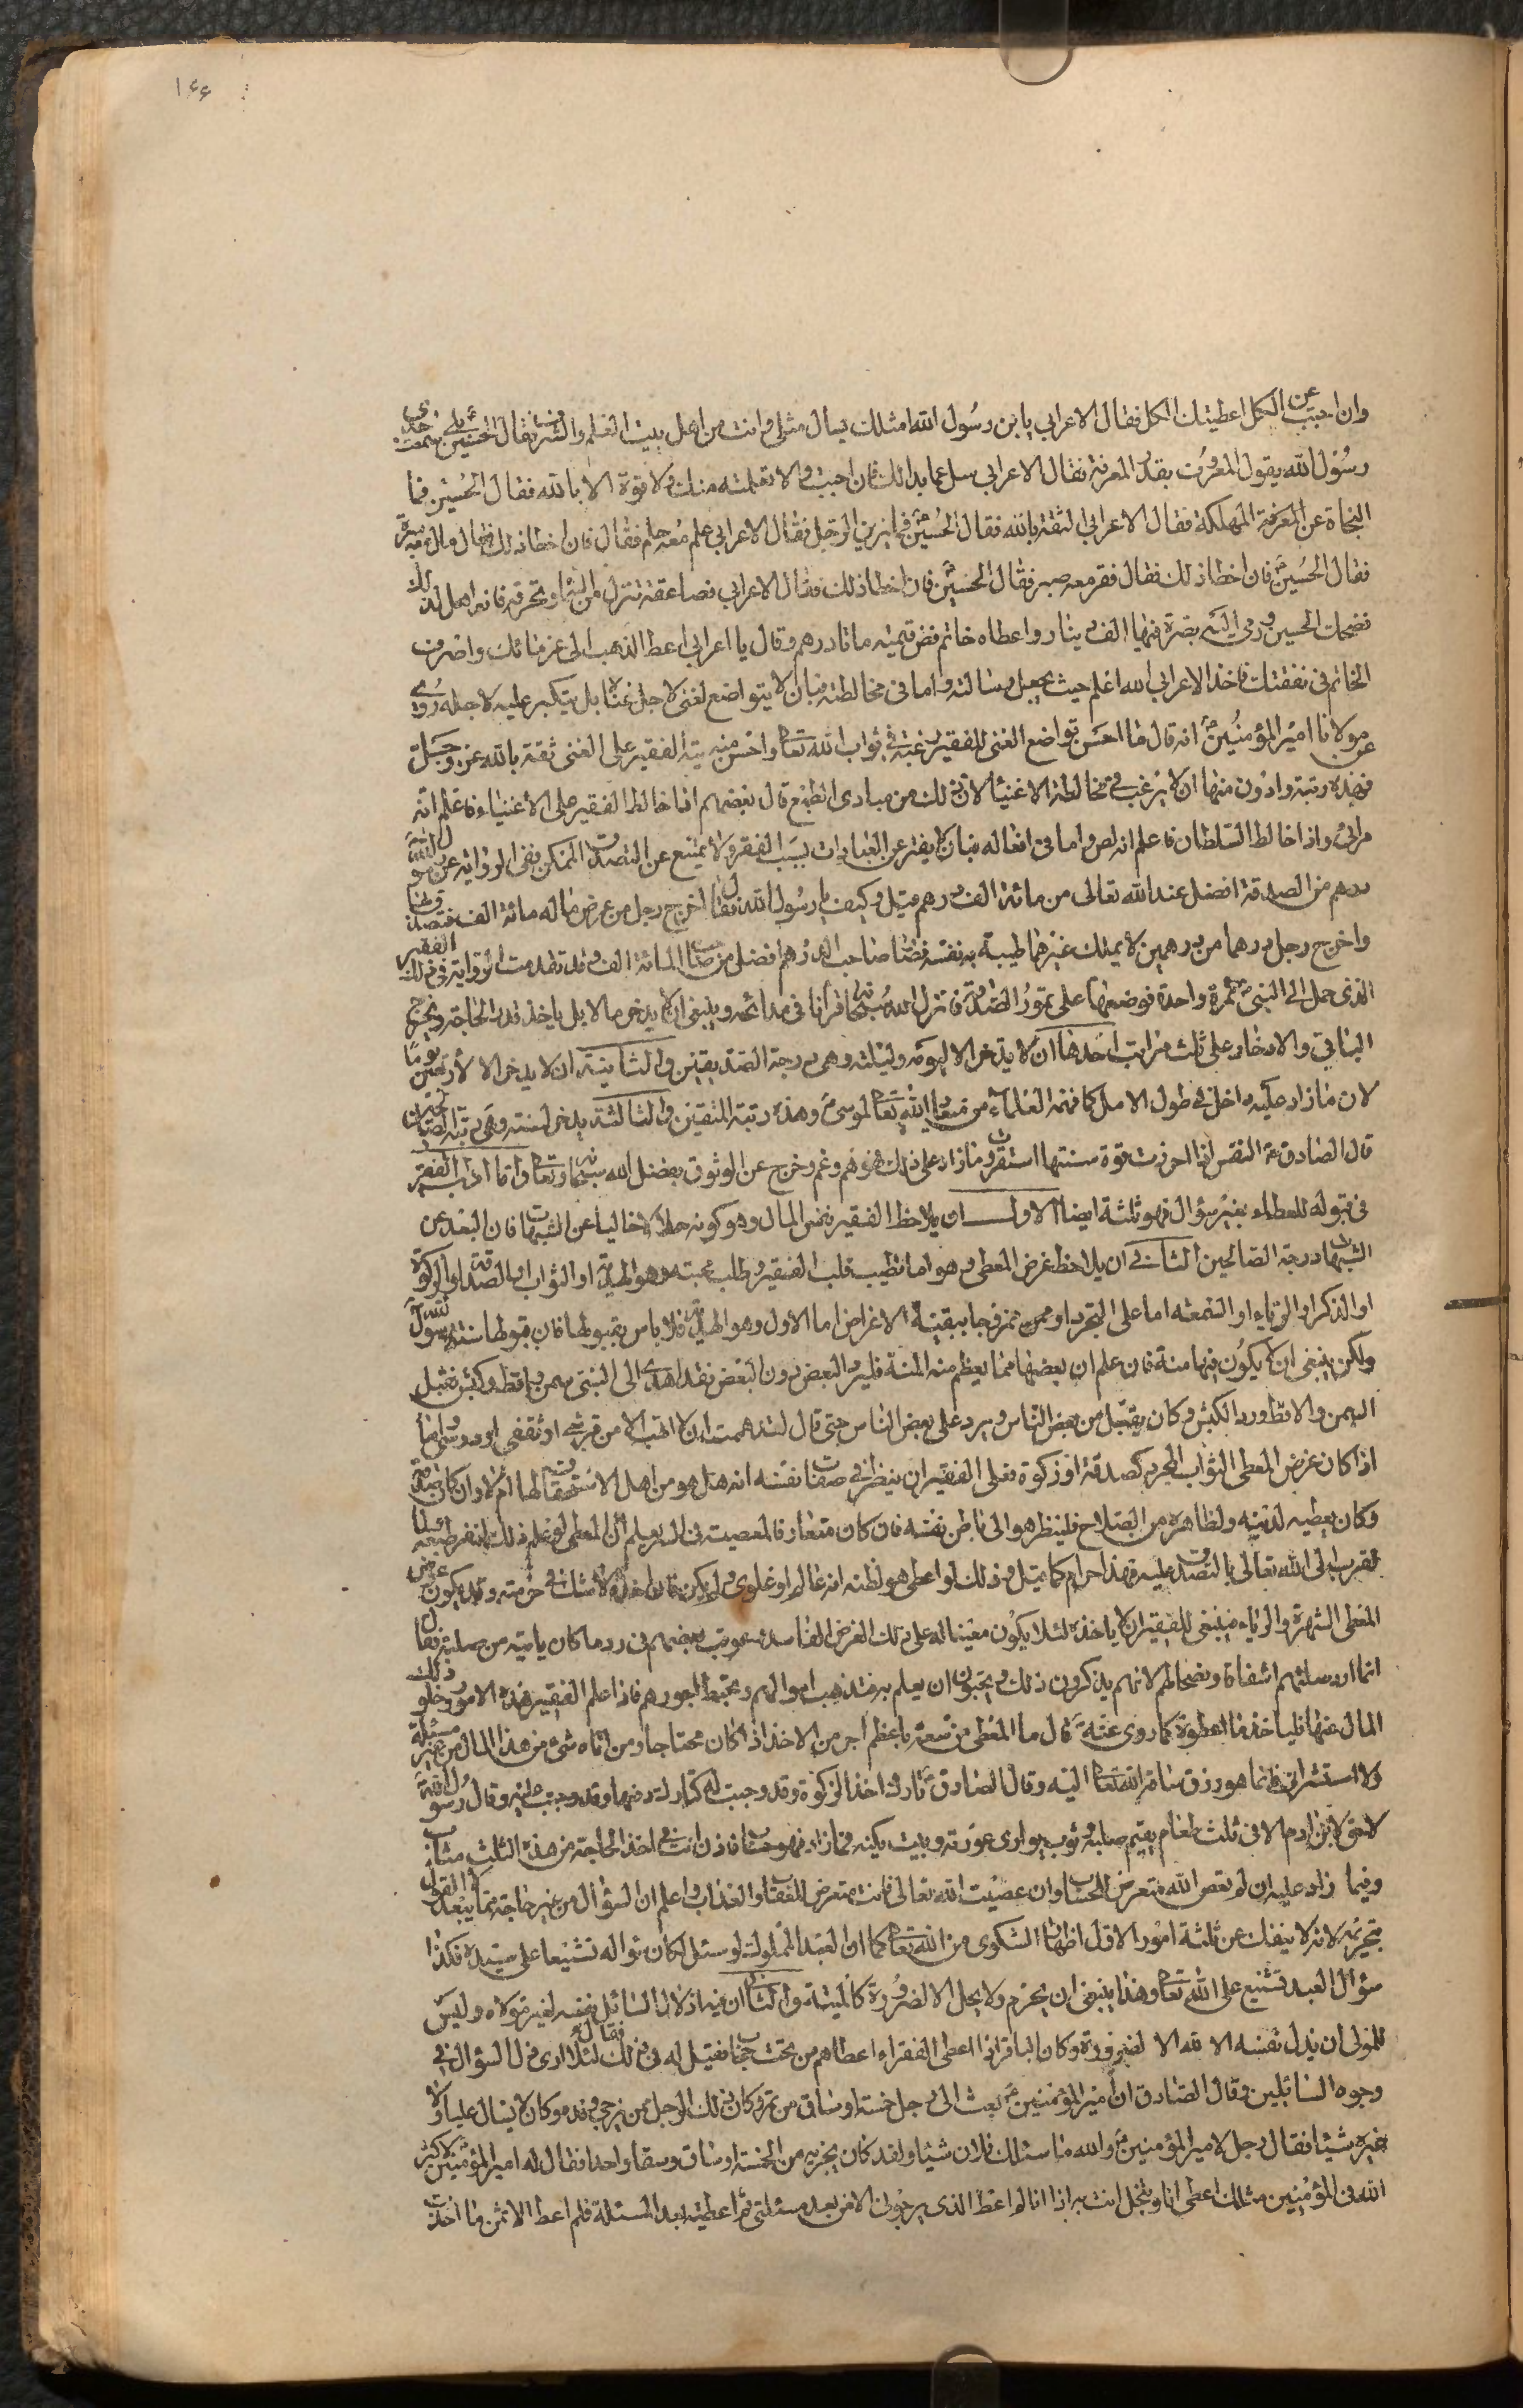 ١٤٤
وان اجبت عن الكل اعطيتك الكل فقال الاعرابي يا بن رسول الله امثلك يسأل مثلي وانت من اهل بيت العلم والشرف فقال الحسين ع بلى سمعت جدي
رسول الله يقول المعروف بقدر المعرفة فقال الاعرابي سل عما بدا لك فان اجبت والا تعلمته منك ولا قوة الا بالله فقال الحسين فما
النجاة عن المعرفة المهلكة فقال الاعرابي الثقة بالله فقال الحسين ع فما يزين الرجل فقال الاعرابي علم معه حلم فقال فان اخطا ذلك فقال مال معه مروة
فقال الحسين ع فان اخطا ذلك فقال فقر معه صبر فقال الحسين ع فان اخطا ذلك فقال الاعرابي فصاعقة تنزل من السماء وتحرقه فانه اهل لذلك
فضحك الحسين ورمى اليه بصرة فيها الف دينار واعطاه خاتم فض قيمته ماتا درهم وقال يا اعرابي اعط الذهب الى غرمائك واصرف
الخاتم في نفقتك فاخذ الاعرابي الله اعلم حيث يجعل رسالته واما في مخالطته فبان لا يتواضع لغني لاجل غناه بل يتكبر عليه لاجله روي
عن مولانا امير المؤمنين ع انه قال ما احسن تواضع الغني للفقير رغبة في ثواب الله تعالى واحسن منه تيه الفقير على الغني ثقة بالله عز وجل
فهذه رتبة وادون منها ان لا يرغب في مخالطة الاغنياء لان ذلك من مبادي الطمع قال بعضهم اذا خالط الفقير على الاغنياء فاعلم انه
مرائي واذا خالط السلطان فاعلم انه لص واما في افعاله فبان لا يفتر عن العبادات بسبب الفقر ولا يمتنع عن التصدق الممكن ففي الرواية عن رسول الله
درهم من الصدقة افضل عند الله تعالى من مائة الف درهم قيل وكيف يا رسول الله فقال اخرج رجل من عرض ماله مائة الف فتصدق بها
واخرج رجل درهما من درهمين لا يملك غيرهما طيبة به نفسه فصار صاحب الدرهم افضل من صاحب المائة الف وقد تقدمت الرواية في ذلك الفقير
الذي حمل الى النبي ص تمرة واحدة فوضعها على تمور الصدقة فانزل الله سبحانه قرآنا في مدائحه وينبغي ان لا يدخر مالا بل ياخذ قدر الحاجة ويخرج
الباقي والادخار على ثلث مراتب احدها ان لا يدخر الا ليومه وليلته وهي درجة الصديقين والثانية ان لا يدخر الا لاربعين يوما
لان ما زاد عليه داخل في طول الامل كما فهمه العلماء من ميعاد الله تعالى لموسى ع وهذه رتبة المتقين والثالثة يدخر لسنته وهي رتبة الصالحين
قال الصادق ع النفس اذا احرزت قوة سنتها استقرت وما زاد على ذلك فهو هم وغم وخرج عن الوثوق بفضل الله سبحانه وتعالى واما اداب الفقير
في قبوله للعطاء بغير سؤال فهو ثلثة ايضا الاول ان يلاحظ الفقير نفس المال وهو كونه حلالا خاليا عن الشبهات فان البعد عن
الشبهات درجة الصالحين الثاني ان يلاحظ غرض المعطي وهو اما تطييب قلب الفقير وطلب محبته وهو الهدية او الثواب والصدقة او الزكوة
او الذكر او الرياء او السمعة اما على التجرد او ممزوجا ببقية الاغراض اما الاول وهو الهدية فلا باس بقبولها فان قبولها سنة رسول الله ص
ولكن ينبغي ان لا يكون فيها منة فان علم ان بعضها مما يعظم منه المنة فليرد البعض دون البعض فقد اهدي الى النبي ص سمن واقط وكبش فقبل
السمن والاقط ورد الكبش وكان يقبل من بعض الناس ويرد على بعض الناس حتى قال لقد هممت ان لا اتهب الا من قرشي او ثقفي او دوسي واما
اذا كان غرض المعطي الثواب المجرد كصدقة او زكوة فعلى الفقير ان ينظر في صفات نفسه انه هل هو من اهل الاستحقاق لها ام لا وان كان صدقة
وكان يعطيه لدينه ولظاهره من الصلاح فلينظر هو الى باطن نفسه فان كان متعارفا لمعصيت في السر يعلم ان المعطي لو علم ذلك لنفر طبعه ولما
تقرب الى الله تعالى بالتصدق عليه فهذا حرام كما قيل وذلك لو اعطي هو لظنه انه عالم او علوي ولم يكن فان اخذه لا شك في حرمته وقد يكون غرض
المعطي الشهرة والرياء فينبغي للفقير ان لا ياخذه لئلا يكون معينا له على ذلك الغرض الفاسد وعوتب بعضهم في رد ما كان ياتيه من صلة فقال
انما ارد صلتهم اشفاقا ونصحا لهم لانهم يذكرون ذلك ويحبون ان يعلم به فتذهب اموالهم وتحبط اجورهم فاذا علم الفقير هذه الامور وخلو ذلك
المال عنها فلياخذ ما اعطوه كما روي عنه ع قال ما المعطي من سعة باعظم اجر من الاخذ اذا كان محتاجا ومن اتاه شيء من هذا المال من غير مسئلة
ولا استشراف فانما هو رزق ساقه الله تعالى اليه وقال الصادق ع تارك اخذ الزكوة وقد وجبت له كتارك دفعها وقد وجبت عليه وقال رسول الله ص
لا حق لابن ادم الا في ثلث طعام يقيم صلبه وثوب يواري عورته وبيت يكنه فما زاد فهو حساب فاذن انت في اخذ الحاجة من هذه الثلث مثاب
وفيما زاد عليه ان لم تعص الله متعرض للحساب وان عصيت الله تعالى فانت متعرض للعقاب والعذاب واعلم ان السؤال من غير حاجة مما يبعد القول
بتحريمه لانه لا ينفك عن ثلثة امور الاول اظهار الشكوى من الله تعالى كما ان العبد المملوك لو سئل لكان سؤاله تشنيعا على سيده فكذا
سؤال العبد تشنيع على الله تعالى وهذا ينبغي ان يحرم ولا يحل الا لضرورة كالميتة والثاني ان فيه اذلال السائل نفسه لغير مولاه وليس
للمولى ان يذل نفسه الا لله الا لضرورة وكان الباقر اذا اعطى الفقراء اعطاهم من تحت حجاب فقيل له في ذلك فقال لئلا ارى ذل السؤال في
وجوه السائلين وقال الصادق ان امير المؤمنين ع بعث الى رجل خمسة اوساق من تمر وكان ذلك الرجل ممن يرجي رفده وكان لا يسال عليا ولا
غيره شيئا فقال رجل لامير المؤمنين ع والله ما سئلك فلان شيئا ولقد كان يجزيه من الخمسة اوساق وسقا واحدا فقال له امير المؤمنين ع لا كثر
الله في المؤمنين مثلك اعطي انا وتبخل انت به اذا انا لم اعط الذي يرجوني الا من بعد مسئلتي ثم اعطيته بعد المسئلة فلم اعط الا ثمن ما اخذت